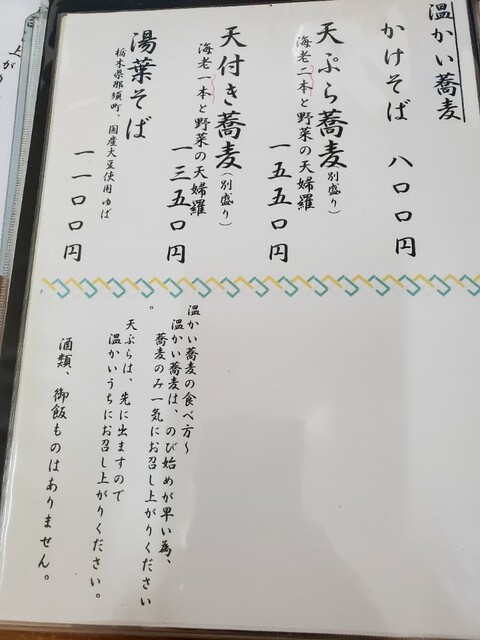 温かい蕎麦
かけそば 八〇〇円
天ぷら蕎麦(別盛り)
海老二本と野菜の天婦羅
一五五〇円
天付き蕎麦(別盛り)
海老一本と野菜の天婦羅
一三五〇円
湯葉そば
栃木県那須町、国産大豆使用ゆば
一一〇〇円
温かい蕎麦の食べ方～
温かい蕎麦は、のび始めが早い為、
蕎麦のみ一気にお召し上がりください
。
天ぷらは、先に出ますので
温かいうちにお召し上がりください。
酒類、御飯ものはありません。